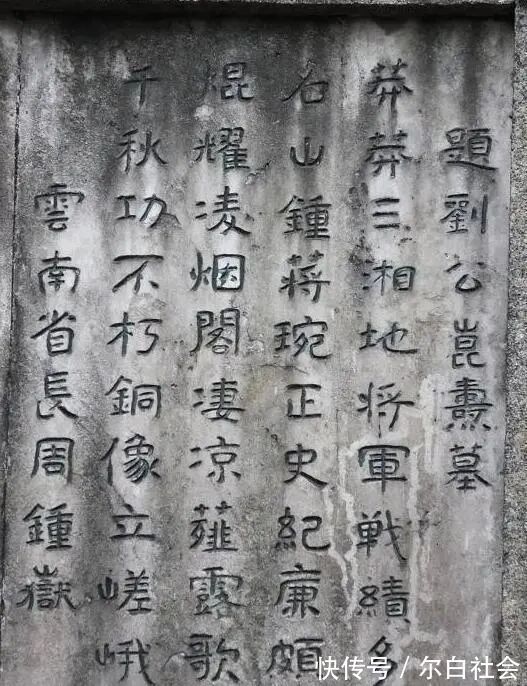 題劉公崑燾墓
莽莽三湘地将軍戰績多
名山鍾蔣琬正史紀廉頗
焜耀凌烟閣凄凉薤露歌
千秋功不朽銅像立嵯峨
雲南省長周鍾嶽
快传号 / 尔白社会